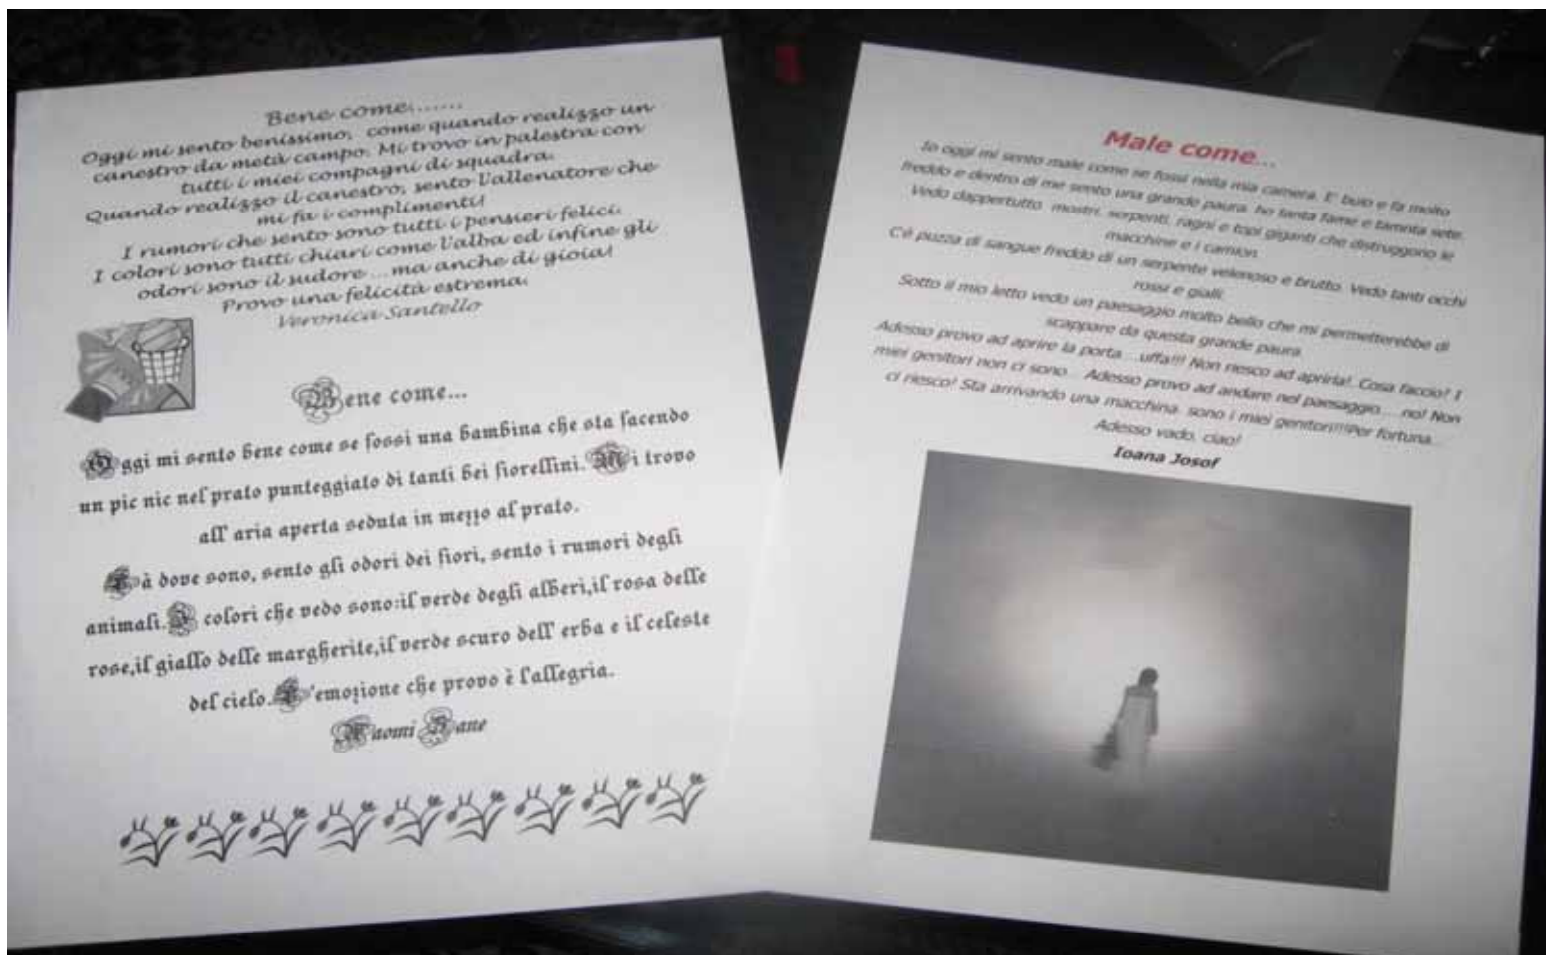 Bene come.......
Oggi mi sento benissimo, come quando realizzo un
canestro da metà campo. Mi trovo in palestra con
tutti i miei compagni di squadra.
Quando realizzo il canestro, sento l'allenatore che
mi fa i complimenti!
I rumori che sento sono tutti i pensieri felici.
I colori sono tutti chiari come l'alba ed infine gli
odori sono il sudore ...ma anche di gioia!
Provo una felicità estrema.
Veronica Santello
Bene come...
Oggi mi sento bene come se fossi una bambina che sta facendo
un pic nic nel prato punteggiato di tanti bei fiorellini. Mi trovo
all' aria aperta seduta in mezzo al prato.
Là dove sono, sento gli odori dei fiori, sento i rumori degli
animali. I colori che vedo sono:il verde degli alberi,il rosa delle
rose,il giallo delle margherite,il verde scuro dell' erba e il celeste
del cielo. L'emozione che provo è l'allegria.
Naomi Kane
Male come...
Io oggi mi sento male come se fossi nella mia camera. E' buio e fa molto
freddo e dentro di me sento una grande paura, ho tanta fame e tamnta sete.
Vedo dappertutto mostri, serpenti, ragni e topi giganti che distruggono le
macchine e i camion.
C'è puzza di sangue freddo di un serpente velenoso e brutto. Vedo tanti occhi
rossi e gialli.
Sotto il mio letto vedo un paesaggio molto bello che mi permetterebbe di
scappare da questa grande paura.
Adesso provo ad aprire la porta ...uffa!!! Non riesco ad aprirla!. Cosa faccio? I
miei genitori non ci sono... Adesso provo ad andare nel paesaggio.... no! Non
ci riesco! Sta arrivando una macchina. sono i miei genitori!!!Per fortuna...
Adesso vado, ciao!
Ioana Josof